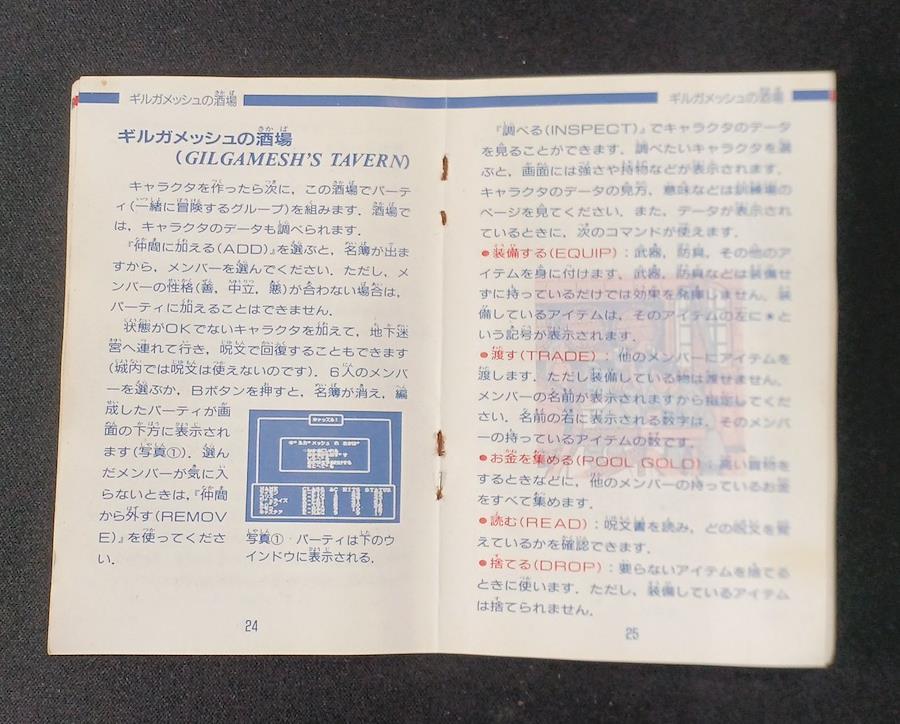 ギルガメッシュの酒場
ギルガメッシュの酒場
(GILGAMESH'S TAVERN)
キャラクタを作ったら次に，この酒場でパーテ
ィ(一緒に冒険するグループ)を組みます．酒場で
は，キャラクタのデータも調べられます．
『仲間に加える(ADD)』を選ぶと，名簿が出ま
すから，メンバーを選んでください．ただし，メ
ンバーの性格(善，中立，悪)が合わない場合は，
パーティに加えることはできません．
状態がOKでないキャラクタを加えて，地下迷
宮へ連れて行き，呪文で回復することもできます
(城内では呪文は使えないのです)．6人のメンバ
ーを選ぶか，Bボタンを押すと，名簿が消え，編
成したパーティが画
面の下方に表示され
ます(写真①)．選ん
だメンバーが気に入
らないときは，『仲間
から外す(REMOV
E)』を使ってくださ
い．
キャッスル！
ギルガメッシュ の さかば
NAME CLASS AC HITS STATUS
写真①・パーティは下のウ
インドウに表示される．
24
ギルガメッシュの酒場
『調べる(INSPECT)』でキャラクタのデータ
を見ることができます．調べたいキャラクタを選
ぶと，画面には強さや持物などが表示されます．
キャラクタのデータの見方，意味などは訓練場の
ページを見てください．また，データが表示され
ているときに，次のコマンドが使えます．
●装備する(EQUIP)：武器，防具，その他のア
イテムを身に付けます．武器，防具などは装備せ
ずに持っているだけでは効果を発揮しません．装
備しているアイテムは，そのアイテムの左に＊と
いう記号が表示されます．
●渡す(TRADE)：他のメンバーにアイテムを
渡します．ただし装備している物は渡せません．
メンバーの名前が表示されますから指定してくだ
さい．名前の右に表示される数字は，そのメンバ
ーの持っているアイテムの数です．
●お金を集める(POOL GOLD)：高い買物を
するときなどに，他のメンバーの持っているお金
をすべて集めます．
●読む(READ)：呪文書を読み，どの呪文を覚
えているかを確認できます．
●捨てる(DROP)：要らないアイテムを捨てる
ときに使います．ただし，装備しているアイテム
は捨てられません．
25